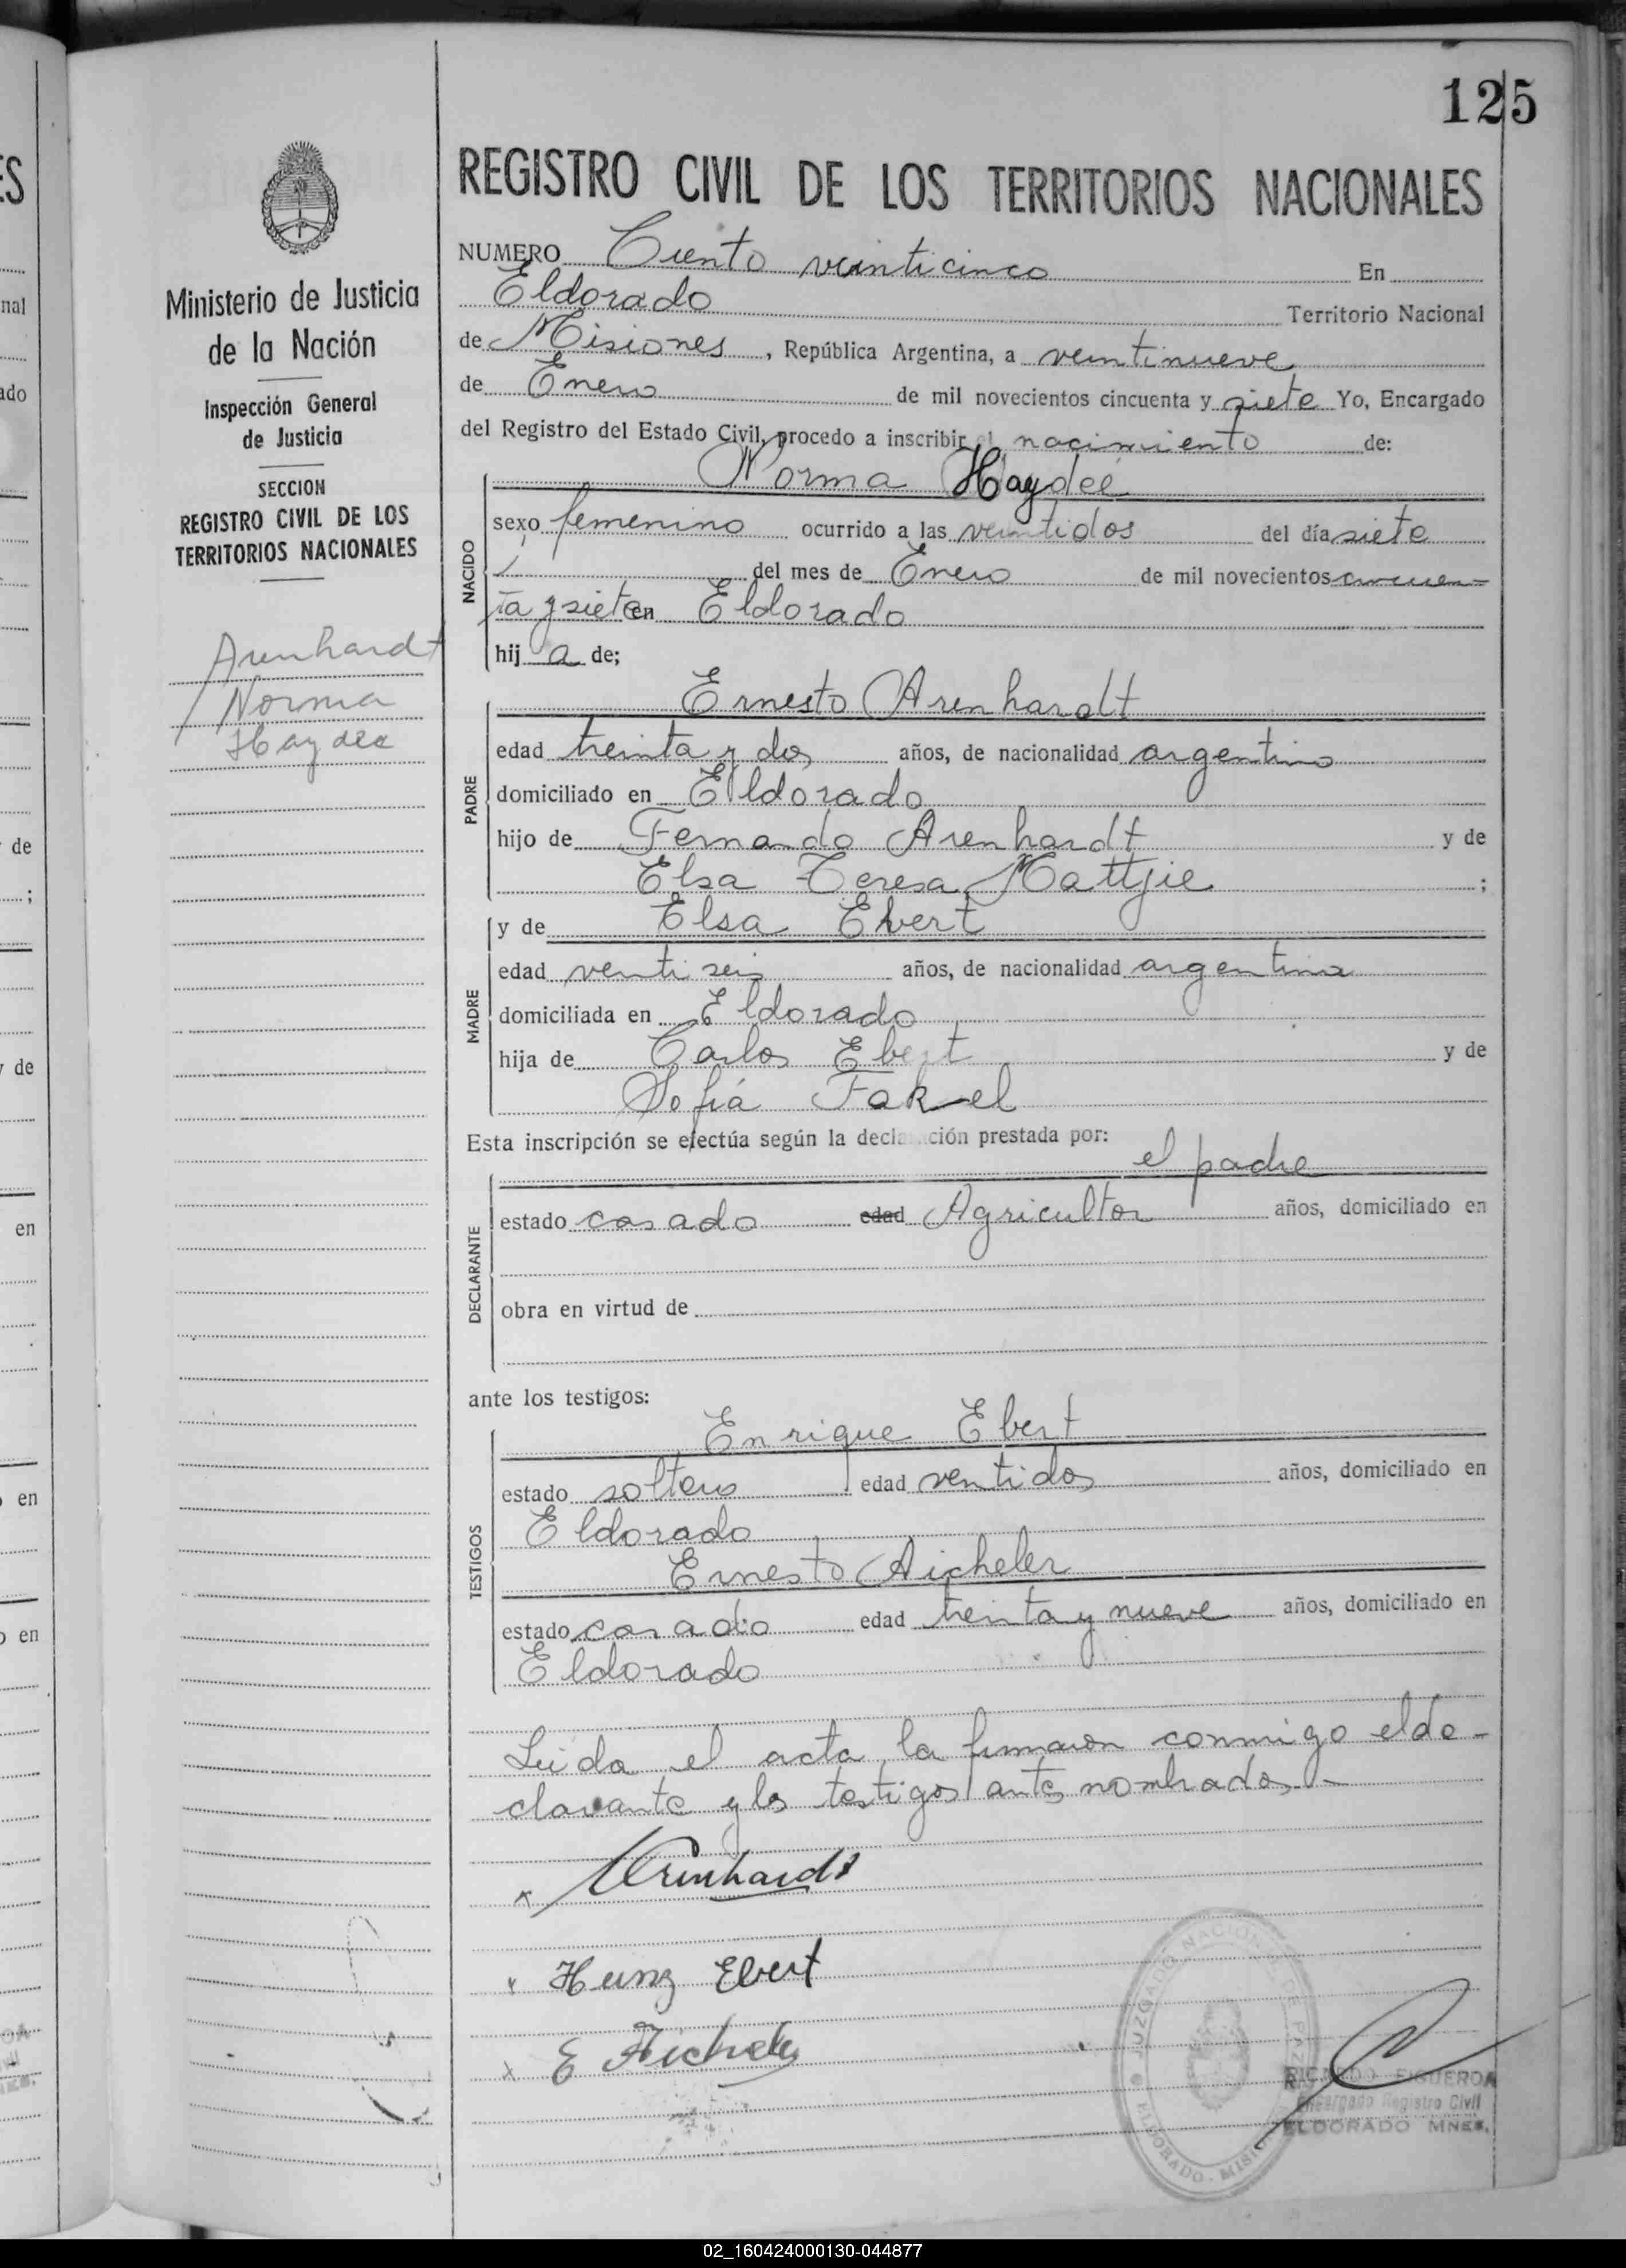 125
REGISTRO CIVIL DE LOS TERRITORIOS NACIONALES
Ministerio de Justicia
de la Nación
Inspección General
de Justicia
SECCION
REGISTRO CIVIL DE LOS
TERRITORIOS NACIONALES
Arenhardt
Norma
Haydee
NUMERO Ciento veinticinco En
Eldorado Territorio Nacional
de Misiones, República Argentina, a veintinueve
de Enero de mil novecientos cincuenta y siete Yo, Encargado
del Registro del Estado Civil, procedo a inscribir el nacimiento de:
NACIDO
Norma Haydeé
sexo femenino ocurrido a las veintidos del día siete
del mes de Enero de mil novecientos cincuen-
ta y siete en Eldorado
hij a de;
PADRE
Ernesto Arenhardt
edad treinta y dos años, de nacionalidad argentino
domiciliado en Eldorado
hijo de Fernando Arenhardt y de
Elsa Teresa Mattjie ;
MADRE
y de Elsa Ebert
edad ventiseis años, de nacionalidad argentina
domiciliada en Eldorado
hija de Carlos Ebert y de
Sofía Fakel
Esta inscripción se efectúa según la declaración prestada por:
el padre
DECLARANTE
estado casado edad Agricultor años, domiciliado en
obra en virtud de
ante los testigos:
TESTIGOS
Enrique Ebert
estado soltero edad ventidos años, domiciliado en
Eldorado
Ernesto Aicheler
estado casado edad treinta y nueve años, domiciliado en
Eldorado
Leida el acta, la firmaron conmigo el de-
clarante y los testigos antes nombrados.-
x Arenhardt
x Heinz Ebert
x E Aicheler
JUZGADO NACIONAL DE PAZ
ELDORADO - MISIONES
RICARDO FIGUEROA
Encargado Registro Civil
ELDORADO MNES.
02_160424000130-044877